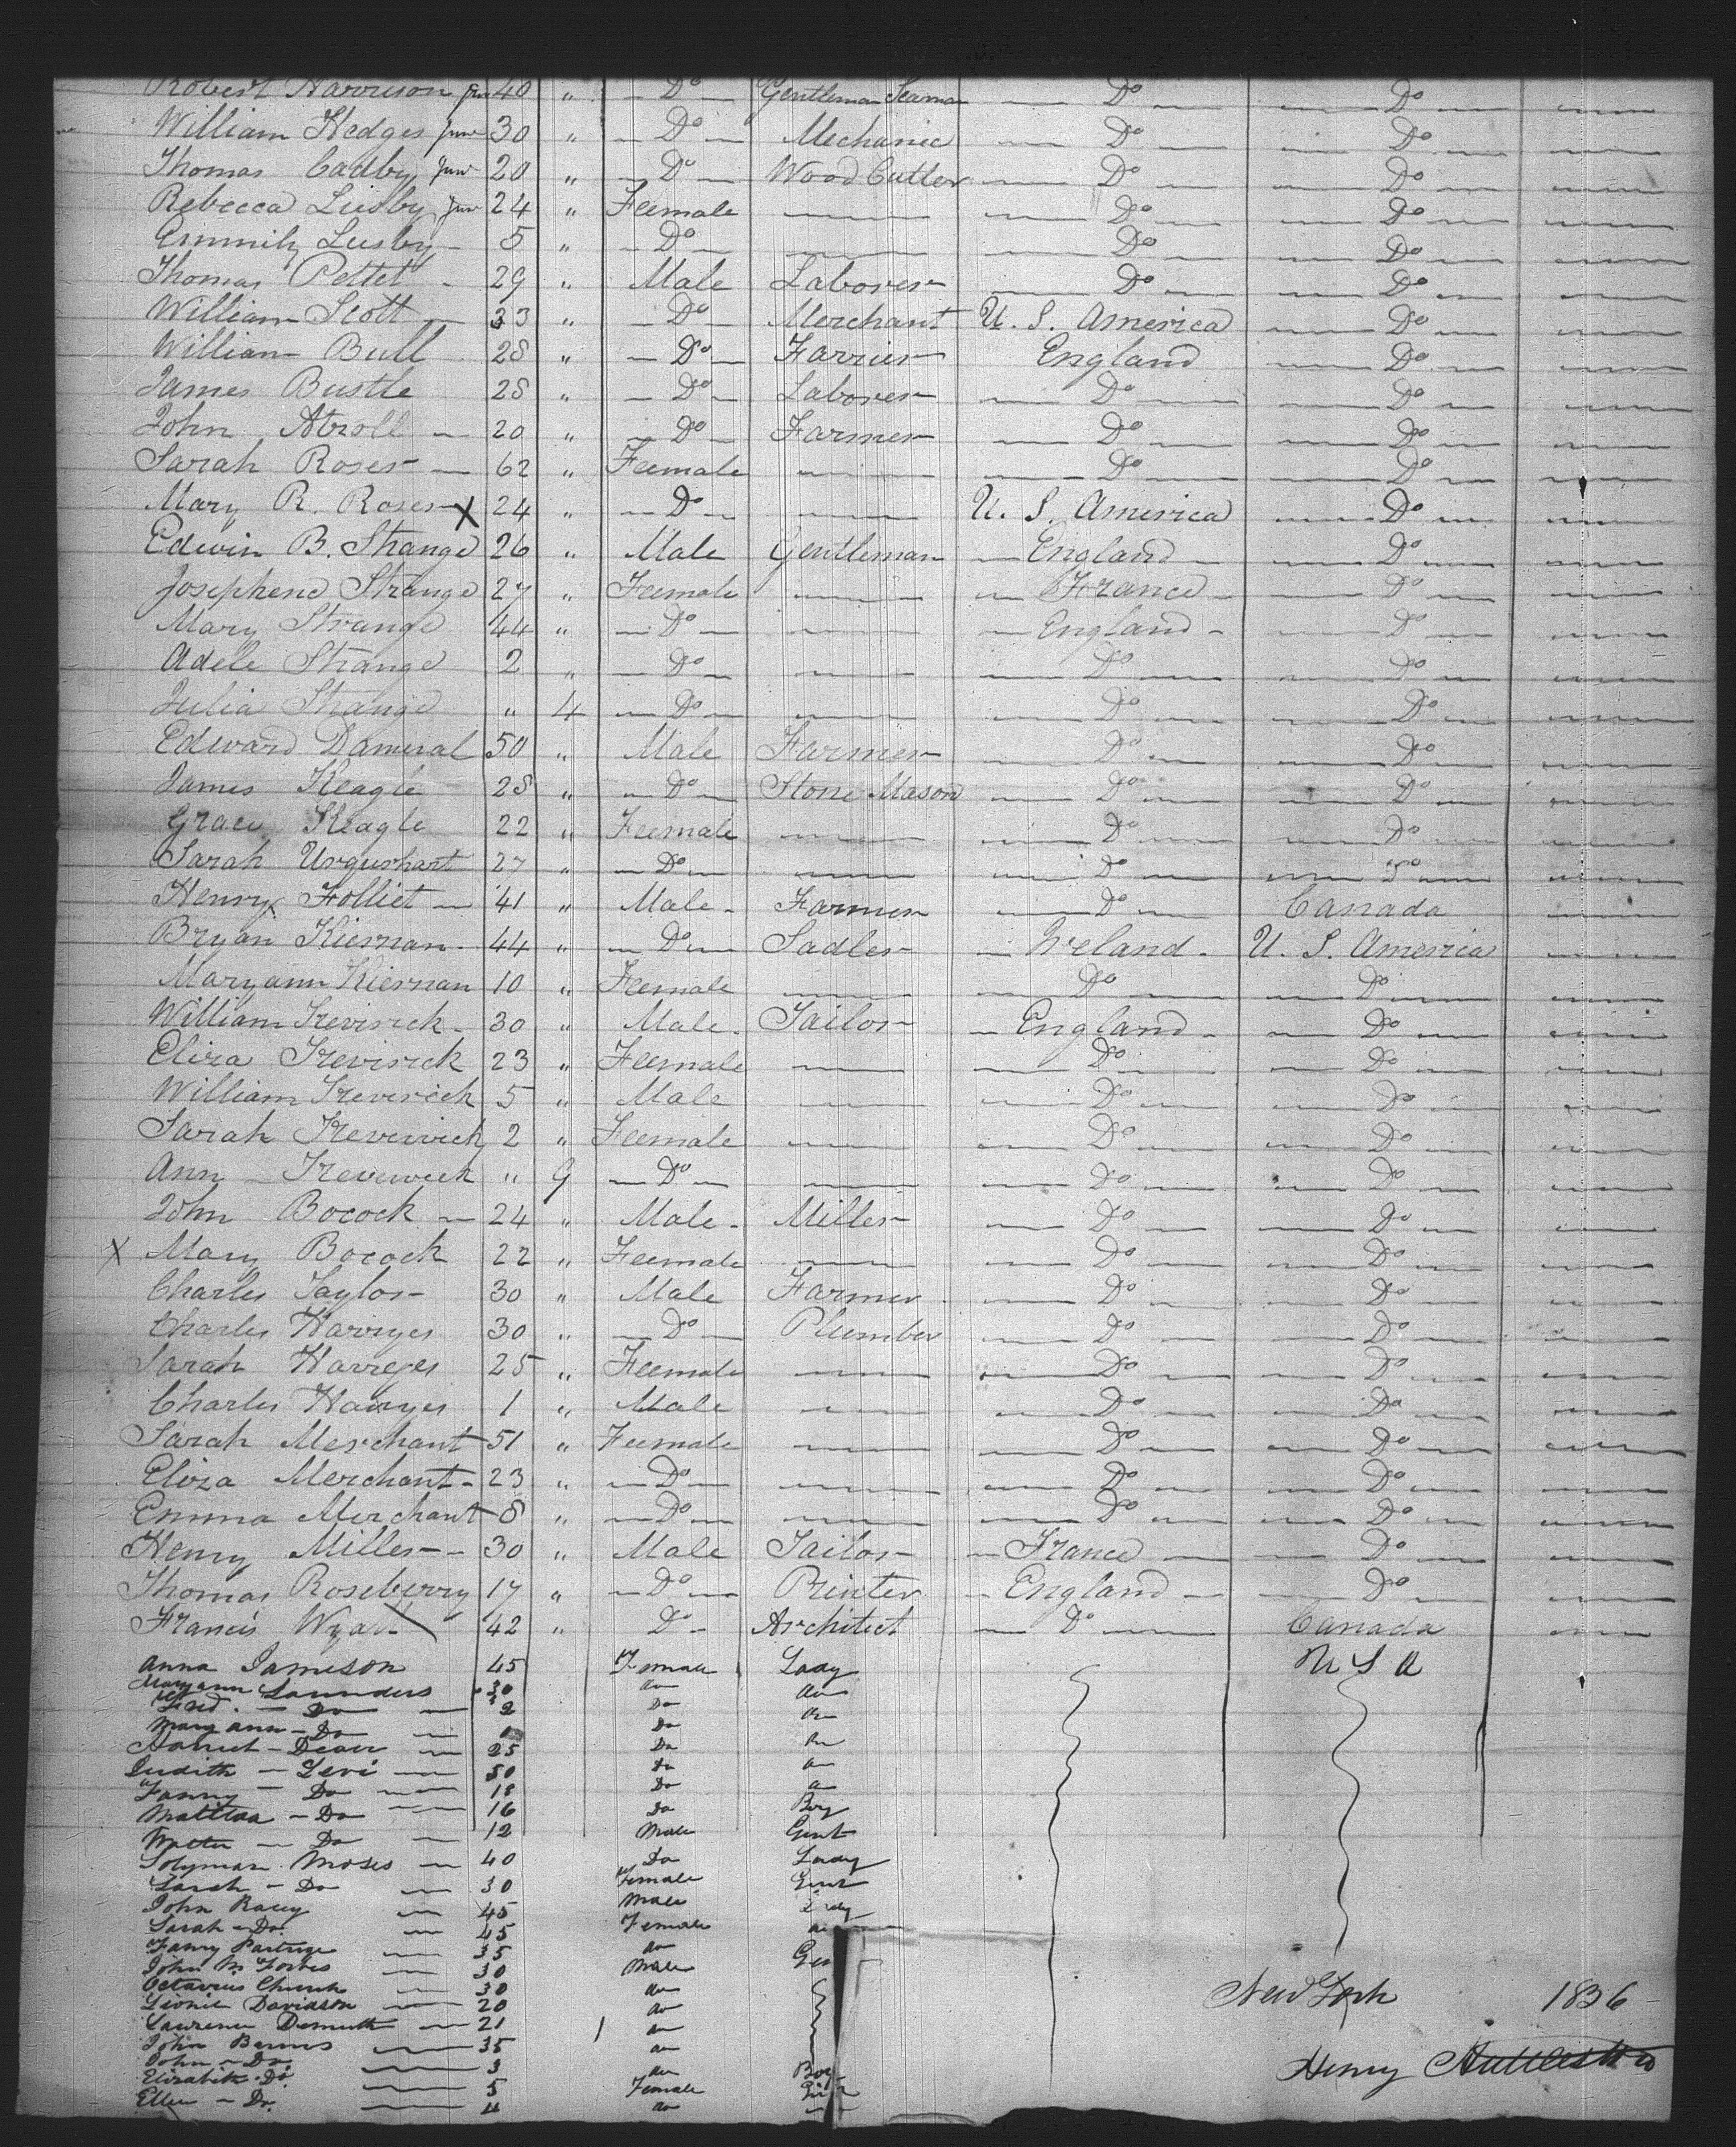 Robert Harrison Jun 40 " Do Gentleman Seaman Do Do
William Hedges Junr 30 " Do Mechanic Do Do
Thomas Cadby Junr 20 " Do Wood Cutter Do Do
Rebecca Lusby Junr 24 " Feemale Do Do
Emmily Lusby 5 " Do Do Do
Thomas Pettet 29 " Male Laborer Do Do
William Scott 33 " Do Merchant U. S. America Do
William Bull 28 " Do Farrier England Do
James Bustle 28 " Do Laborer Do Do
John Atroll 20 " Do Farmer Do Do
Sarah Roser 62 " Feemale Do Do
Mary R. Roser X 24 " Do U. S. America Do
Edwin B. Strange 26 " Male Gentleman England Do
Josephene Strange 27 " Feemale France Do
Mary Strange 44 " Do England Do
Adele Strange 2 " Do Do Do
Julia Strange " 4 Do Do Do
Edward Dameral 50 " Male Farmer Do Do
James Keagle 28 " Do Stone Mason Do Do
Grace Keagle 22 " Feemale Do Do
Sarah Urquerhart 27 " Do Do Do
Henry Folliet 41 " Male Farmer Do Canada
Bryan Kiernan 44 " Do Sadler Ireland U. S. America
Maryann Kiernan 10 " Feemale Do Do
William Trevirick 30 " Male Tailor England Do
Eliza Trevirick 23 " Feemale Do Do
William Trevirick 5 " Male Do Do
Sarah Trevirick 2 " Feemale Do Do
Ann Treverick " 9 Do Do Do
John Bocock 24 " Male Miller Do Do
X Mary Bocock 22 " Feemale Do Do
Charles Taylor 30 " Male Farmer Do Do
Charles Harryes 30 " Do Plumber Do Do
Sarah Harreyes 25 " Feemale Do Do
Charles Harryes 1 " Male Do Do
Sarah Merchant 51 " Feemale Do Do
Eliza Merchant 23 " Do Do Do
Emma Merchant 8 " Do Do Do
Henry Miller 30 " Male Tailor France Do
Thomas Roseberry 17 " Do Printer England Do
Francis Wyatt 42 " Do Architect Do Canada
Anna Jameson 45 Female Lady U S A
Maryann Saunders 30 do do
Fred. Do 2 Do do
Mary Ann Do Do do
Harriet Deane 25 Do do
Judith Levi 50 do do
Fanny Do 18 Do
Matilda Do 16 Do Boy
Walter Do 12 Male Gent
Solyman Moses 40 Do Lady
Sarah Do 30 Female Gent
John Racey 45 Male Lady
Sarah Do. 45 Female do
Fanny Partrige 35 do
John M. Forbes 30 Male Gen
Octavius Church 30 do
Lionel Davidson 20 do
Lawrence Demuth 21 do
John Barnes 35 do
John Do. 3 do Boy
Elizabeth Do. 5 Female Girl
Ellen Do. 4 do
New York 1836
Henry